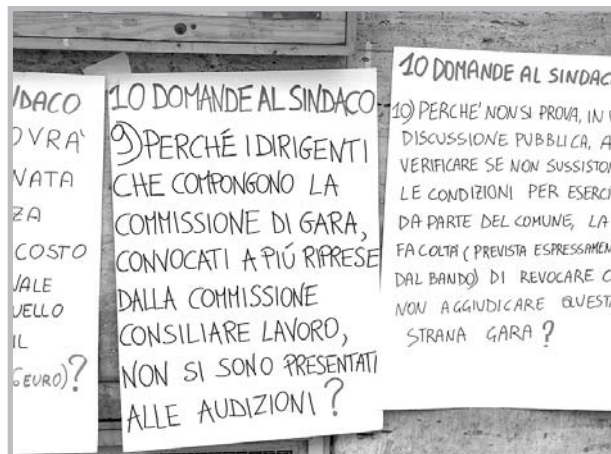 10 DOMANDE AL SINDACO
9) PERCHÉ I DIRIGENTI
CHE COMPONGONO LA
COMMISSIONE DI GARA,
CONVOCATI A PIÚ RIPRESE
DALLA COMMISSIONE
CONSILIARE LAVORO,
NON SI SONO PRESENTATI
ALLE AUDIZIONI?
10 DOMANDE AL SINDAC
10) PERCHE' NON SI PROVA, IN
DISCUSSIONE PUBBLICA, A
VERIFICARE SE NON SUSSISTO
LE CONDIZIONI PER ESERCI
DA PARTE DEL COMUNE, LA
FACOLTA' (PREVISTA ESPRESSAMEN
DAL BANDO) DI REVOCARE O
NON AGGIUDICARE QUESTA
STRANA GARA?
DACO
OVRA'
NATA
ZA
COSTO
VALE
UELLO
IL
EURO)?